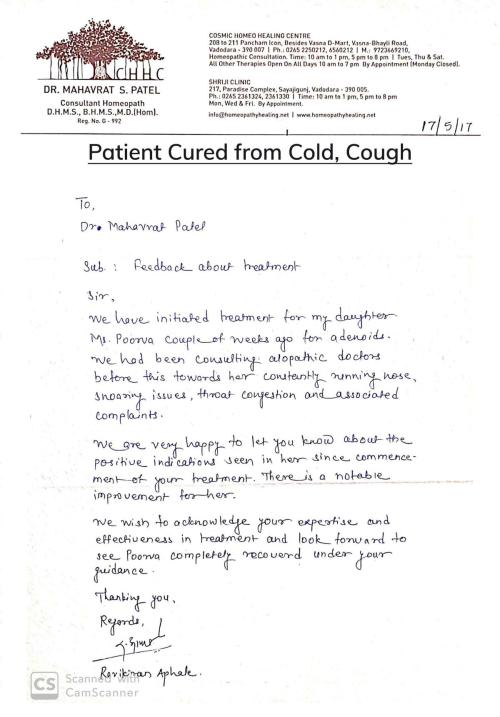 CHHC
DR. MAHAVRAT S. PATEL
Consultant Homeopath
D.H.M.S., B.H.M.S.,M.D.(Hom).
Reg. No. G - 992
COSMIC HOMEO HEALING CENTRE
208 to 211 Pancham Icon, Besides Vasna D-Mart, Vasna-Bhayli Road,
Vadodara - 390 007 | Ph.: 0265 2250212, 6560212 | M.: 9723669210,
Homeopathic Consultation. Time: 10 am to 1 pm, 5 pm to 8 pm | Tues, Thu & Sat.
All Other Therapies Open On All Days 10 am to 7 pm By Appointment (Monday Closed).
SHRIJI CLINIC
217, Paradise Complex, Sayajigunj, Vadodara - 390 005.
Ph.: 0265 2361324, 2361330 | Time: 10 am to 1 pm, 5 pm to 8 pm
Mon, Wed & Fri. By Appointment.
info@homeopathyhealing.net | www.homeopathyhealing.net
17/5/17
Patient Cured from Cold, Cough
To,
Dr. Mahavrat Patel
Sub. : Feedback about treatment
Sir,
We have initiated treatment for my daughter
Ms. Poorva couple of weeks ago for adenoids.
We had been consulting alopathic doctors
before this towards her constantly running nose,
snoaring issues, throat congestion and associated
complaints.
We are very happy to let you know about the
positive indications seen in her since commence-
ment of your treatment. There is a notable
improvement for her.
We wish to acknowledge your expertise and
effectiveness in treatment and look forward to
see Poorva completely recoverd under your
guidance.
Thanking you,
Regards,
Ravikiran Aphale.
CS Scanned with
CamScanner